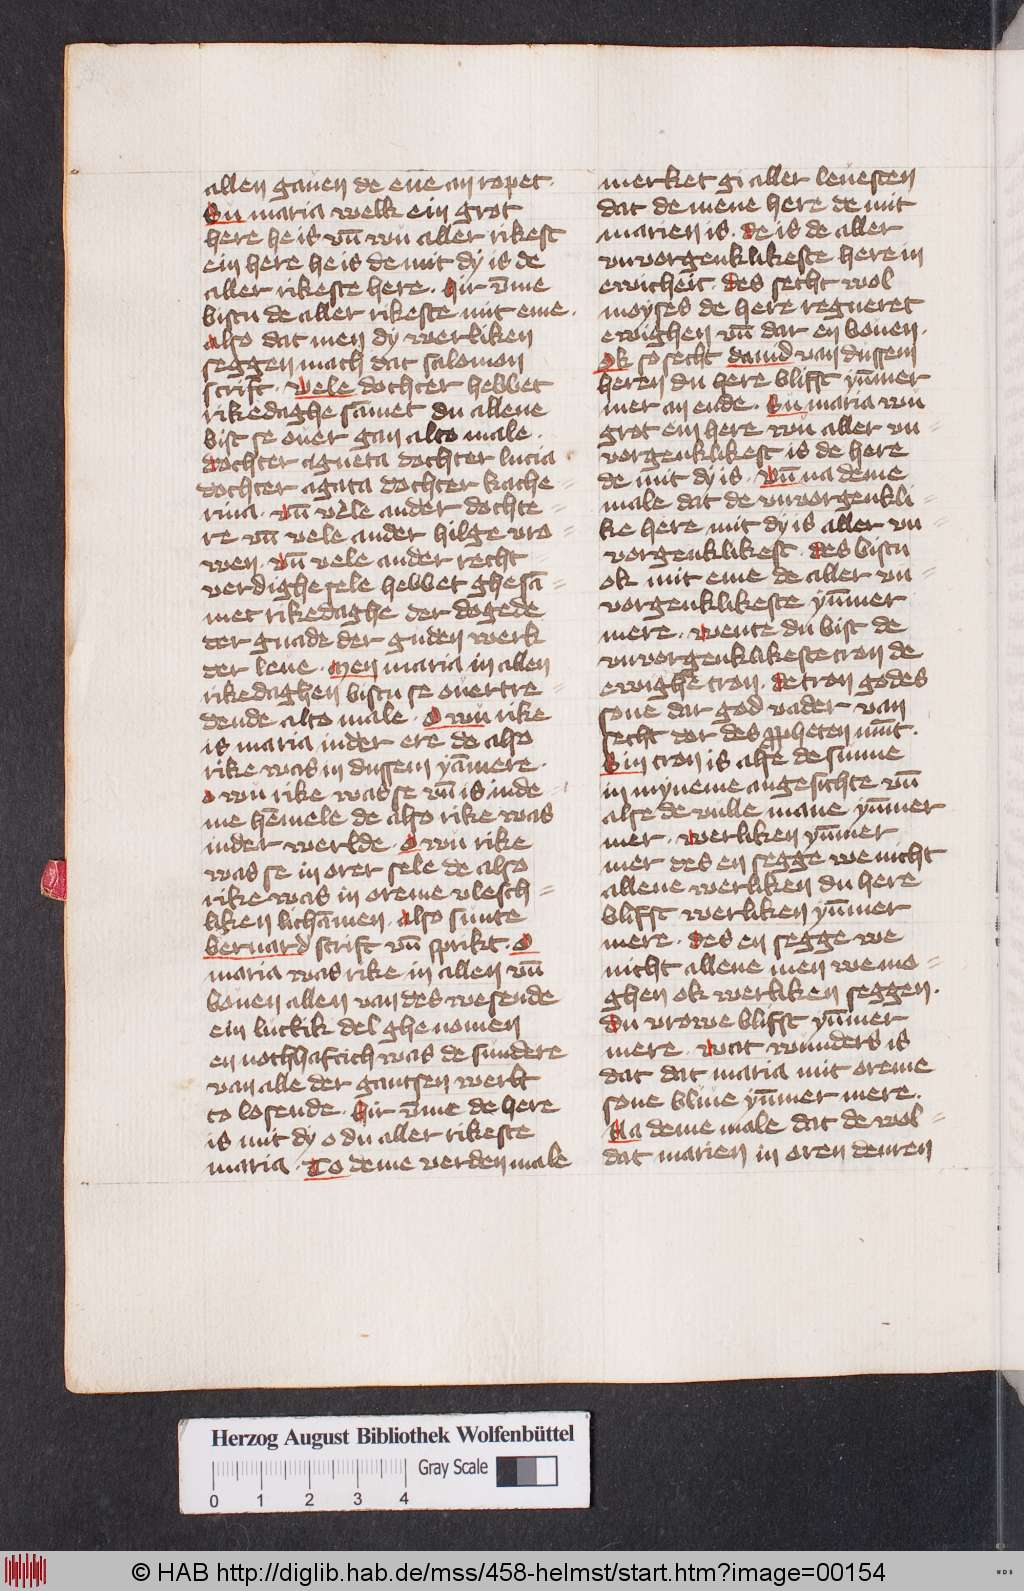 allen gauen de ene an ropet.
Su maria welk ein grot
here he is vn̄ wu aller rikest
ein here he is de mit dy is de
aller rikeste here. Hir v̄me
bistu de aller rikeste mit eme.
Also dat men dy werliken
seggen mach dat salomon
scrift. Vele dochter hebbet
rikedaghe sāmet du allene
bist se ouer gan alto male.
dochter agneta dochter lucia
dochter agata dochter kathe=
rina. Vn̄ vele ander dochte=
re vn̄ vele ander hilge vro=
wen. Vn̄ vele ander recht
verdighe sele hebbet ghesā=
met rikedaghe der dogede
der gnade der guden werk
der leue. Men maria in allen
rikedaghen bistu se ouertre=
dende alto male. O wu rike
is maria inder ere de also
rike was in dussem yāmere.
O wu rike was se vn̄ is inde=
me hēmele de also rike was
inder werlde. O wu rike
was se in orer sele de also
rike was in oreme vlesch=
liken lichāmen. Also sunte
bernard scrift vn̄ sprikt. O
maria was rike in allen vn̄
bouen allen van des wesende
ein luckik del ghenomen
en nothhaftich was de sundere
van alle der gantsen werlt
to losende. Hir v̄me de here
is mit dy o du aller rikeste
maria. To deme verden male
merket gi aller leuesten
dat de mene here de mit
marien is. de is de aller
vnvorgenklikeste here in
ewicheit. des secht wol
moyses de here regneret
ewighen vn̄ dar en bouen.
Ok so secht dauid van dussem
heren du here blifft yūmer
mer an ende. Su maria wu
grot ein here wu aller vn=
vorgenklikest is de here
de mit dy is. Vn̄ na deme
male dat de vnvorgenkli=
ke here mit dy is aller vn=
vorgenklikest. des bistu
ok mit eme de aller vn=
vorgenklikeste yūmer
mere. wente du bist de
vnvorgenklikeste tron de
ewighe tron. de tron godes
sone dar god vader van
secht dor des ppheten mūt.
Sin tron is alse de sunne
in myneme angesichte vn̄
alse de vulle mane yūmer
mer. werliken yūmer
mer des en segge we nicht
allene werliken du here
blifft werliken yūmer
mere. des en segge we
nicht allene men we mo=
ghen ok werliken seggen.
du vrowe blifft yūmer
mere. wat wunders is
dat dat maria mit oreme
sone bliue yūmer mere.
Na deme male dat de wol=
dat marien in oren denren
Herzog August Bibliothek Wolfenbüttel
Gray Scale
0 1 2 3 4
© HAB http://diglib.hab.de/mss/458-helmst/start.htm?image=00154